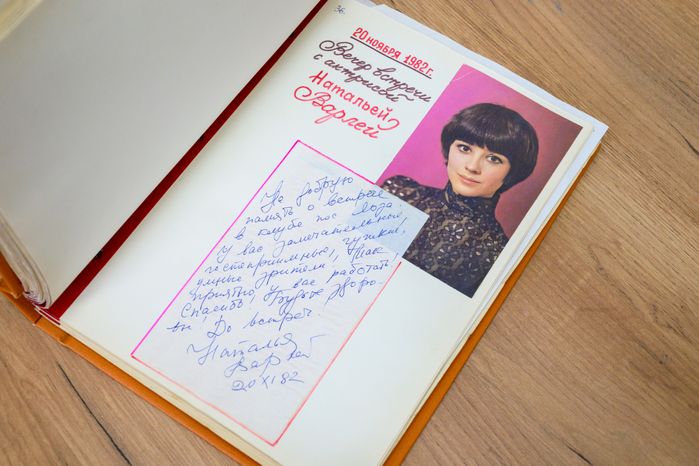 36.
20 ноября 1982г.
Вечер встречи
с актрисой
Натальей
Варлей
На добрую
память о встрече
в клубе пос. Лоза.
У вас замечательные,
гостеприимные, чуткие,
умные зрители. Так
приятно у вас работать!
Спасибо! Будьте здоро-
вы! До встреч!
Наталья
Варлей
20 XI 82